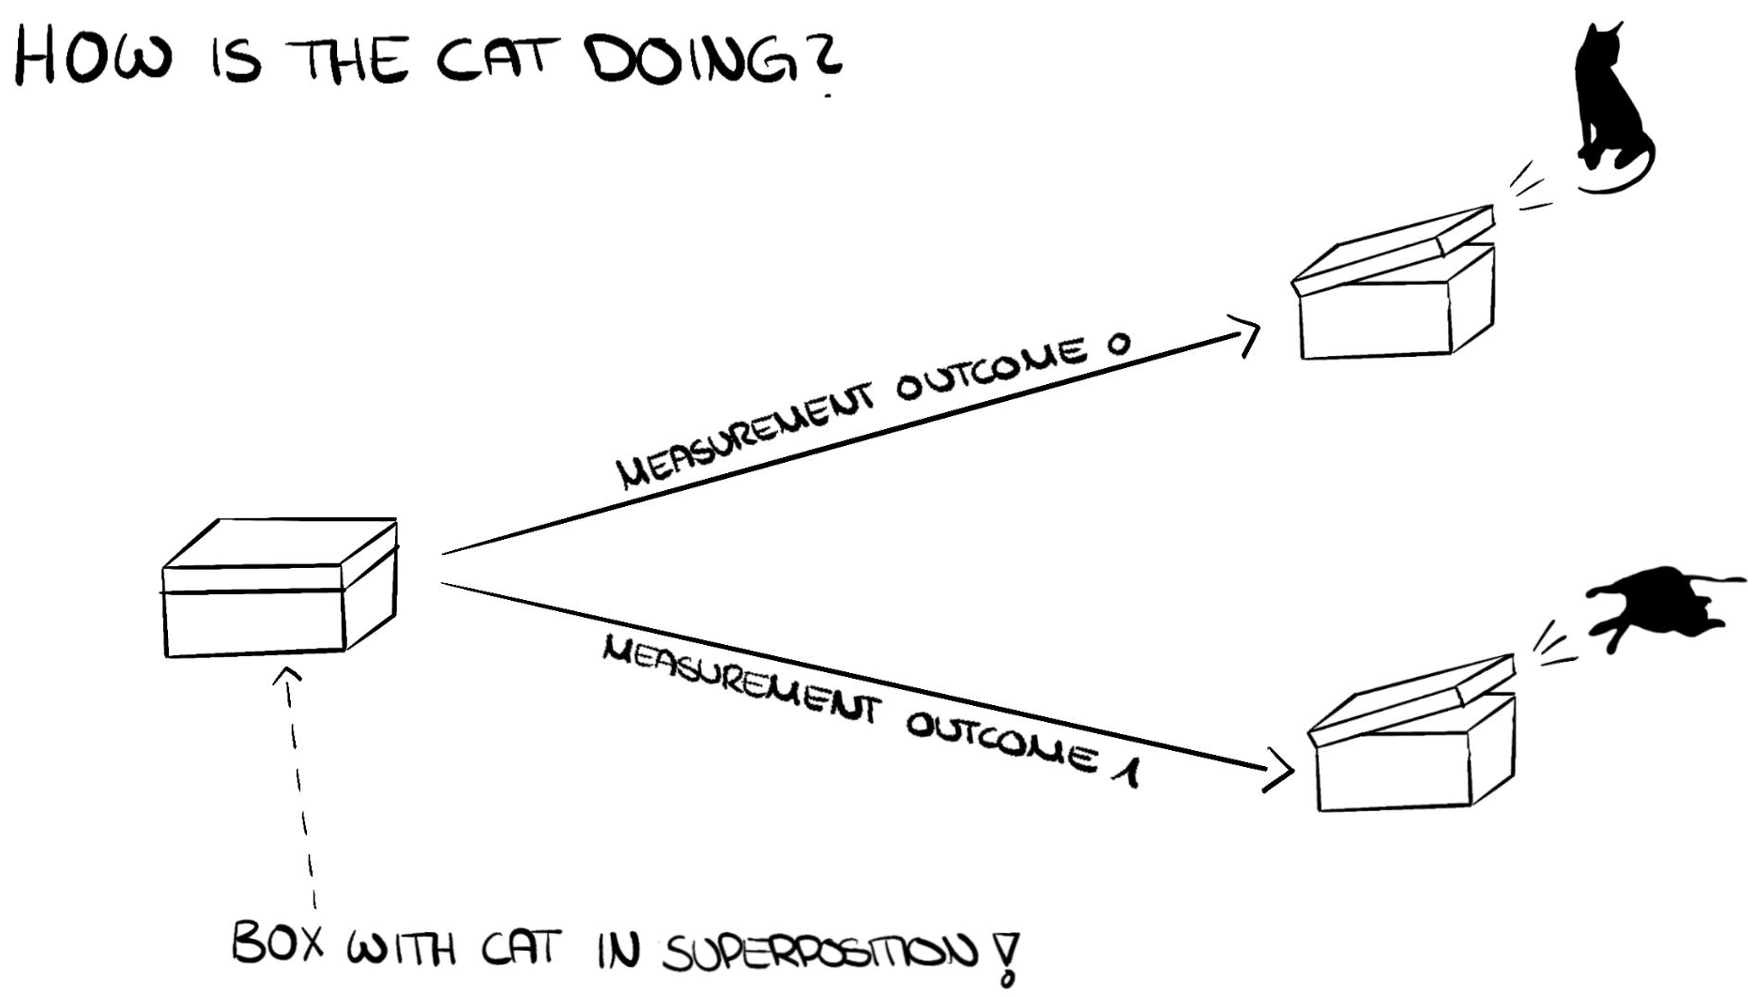 HOW IS THE CAT DOING?
MEASUREMENT OUTCOME 0
MEASUREMENT OUTCOME 1
BOX WITH CAT IN SUPERPOSITION!